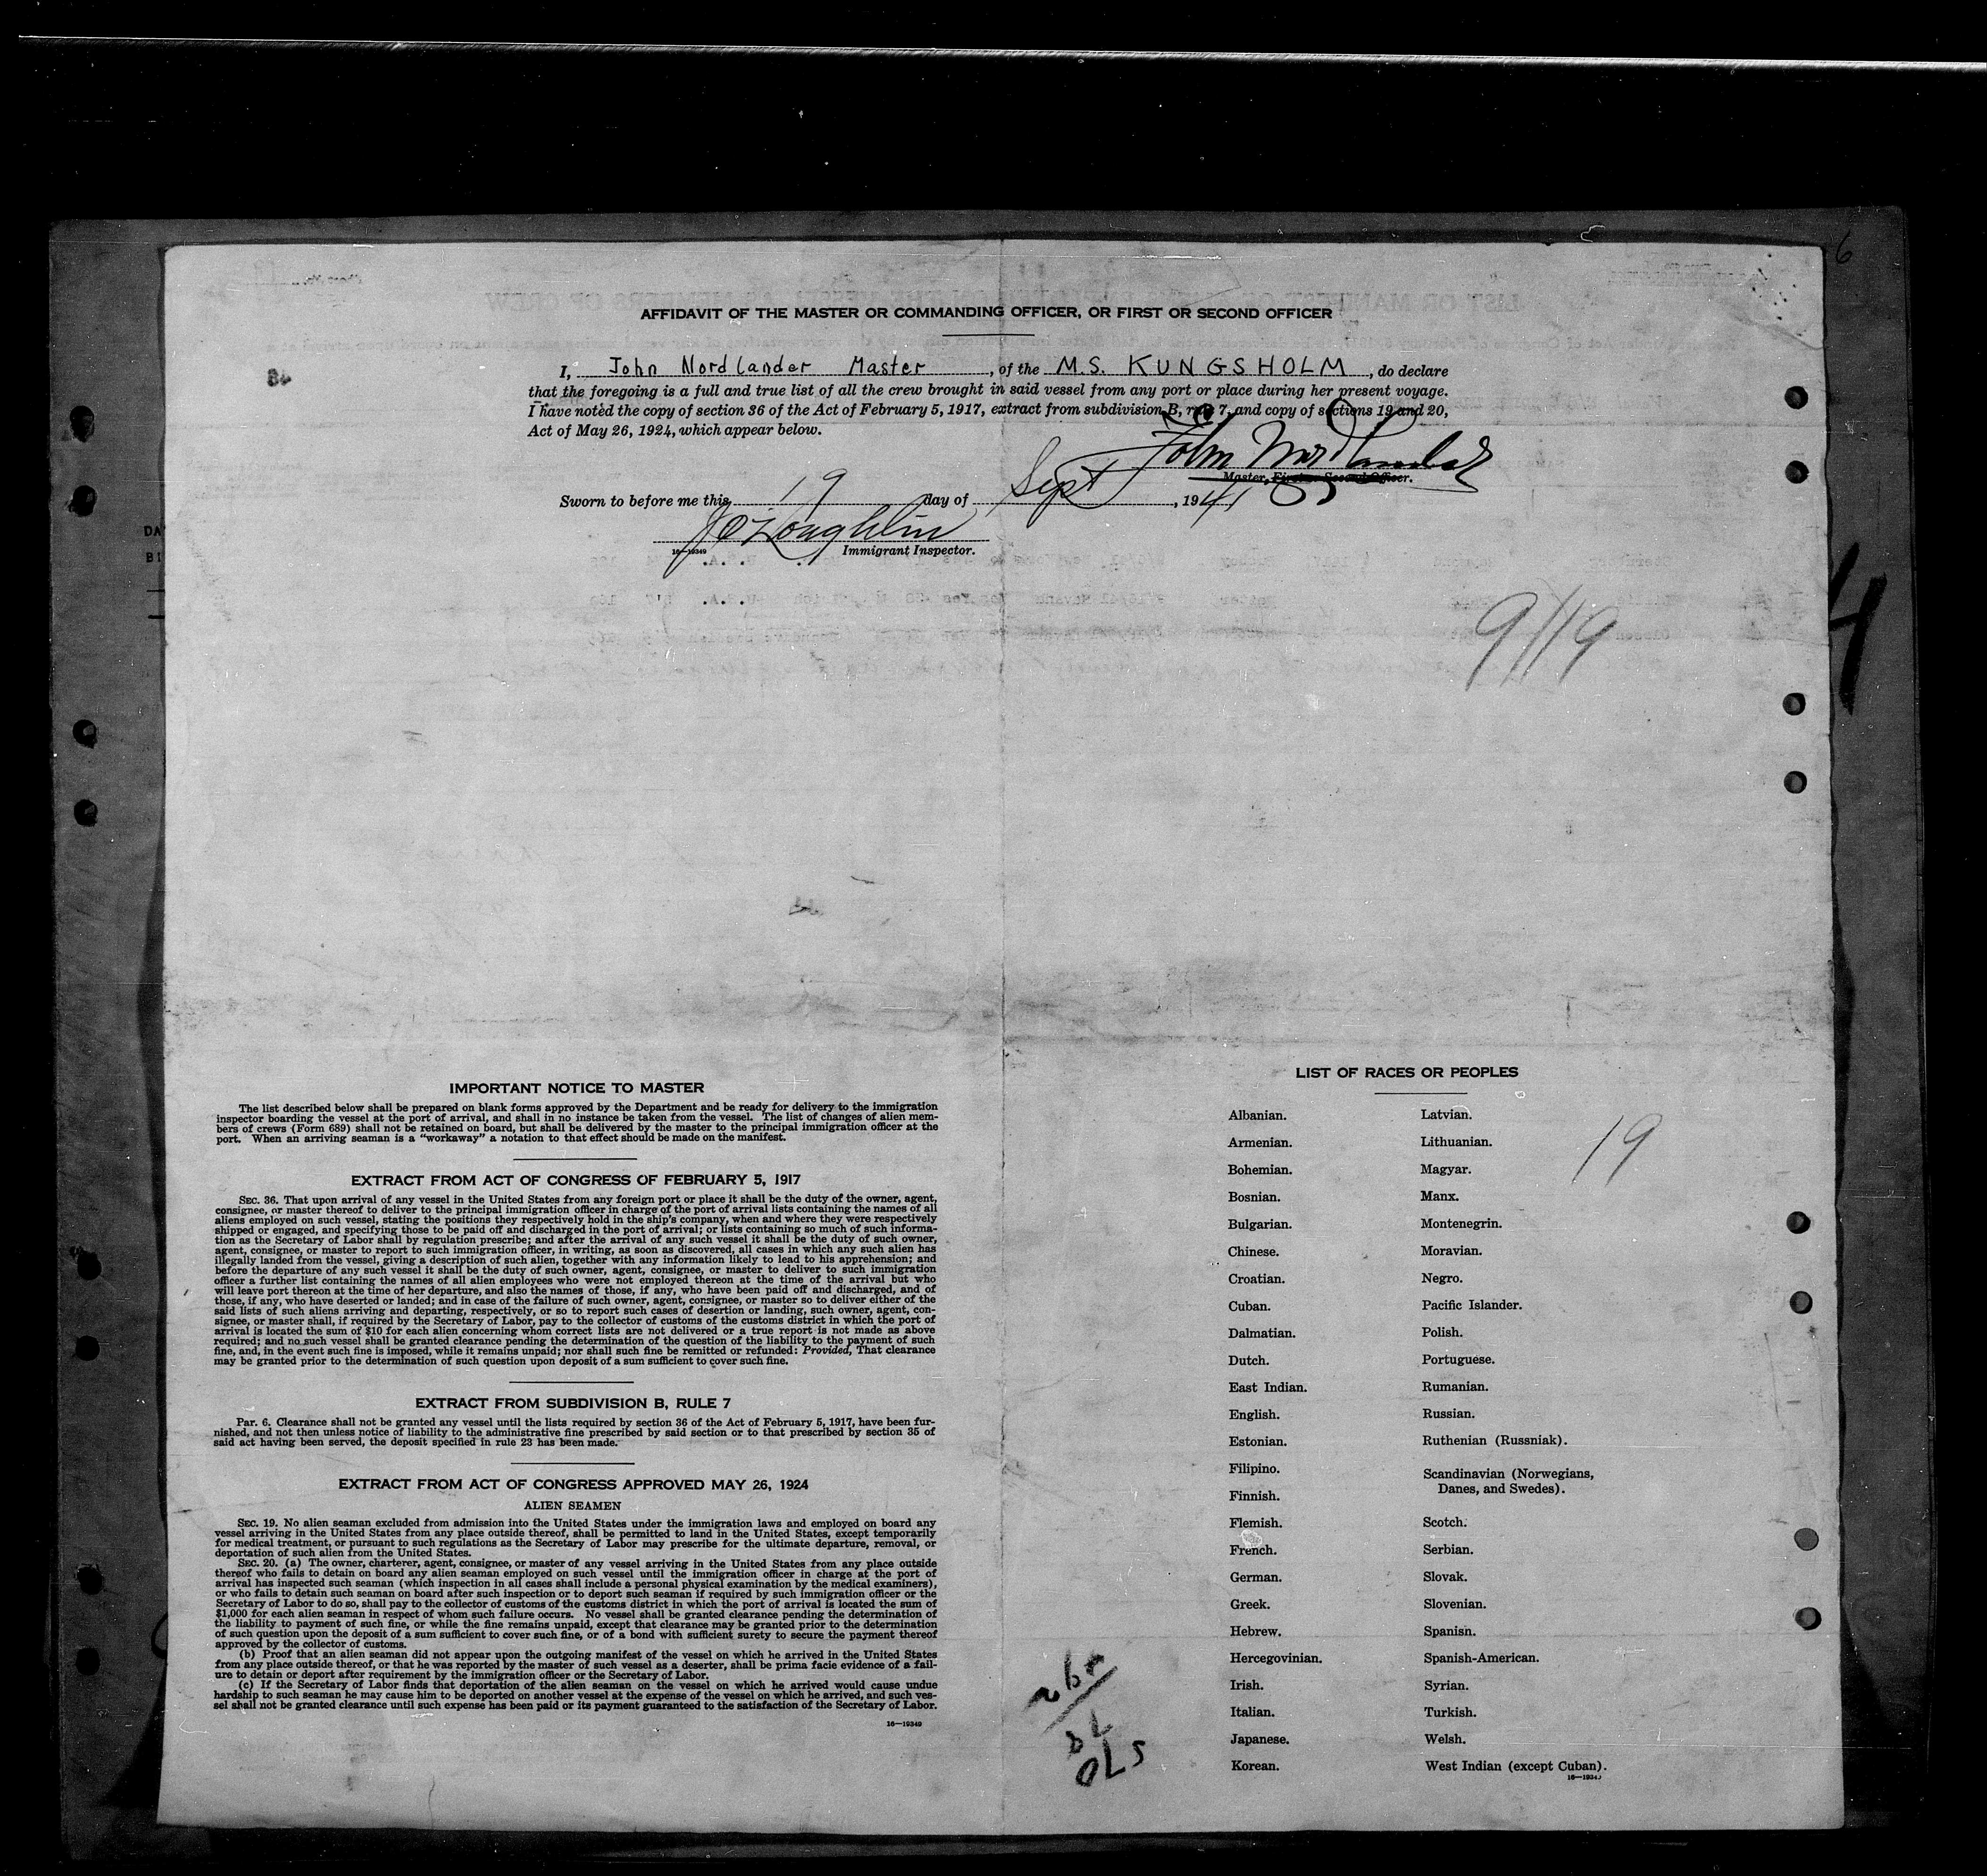 AFFIDAVIT OF THE MASTER OR COMMANDING OFFICER, OR FIRST OR SECOND OFFICER
I, John Nordlander Master, of the M.S. KUNGSHOLM, do declare
that the foregoing is a full and true list of all the crew brought in said vessel from any port or place during her present voyage.
I have noted the copy of section 36 of the Act of February 5, 1917, extract from subdivision B, rule 7, and copy of sections 19 and 20,
Act of May 26, 1924, which appear below.
John Nordlander
Master, First or Second Officer.
Sworn to before me this 19 day of Sept, 1941
J O'Loughlin
16—19349 Immigrant Inspector.
9/19
IMPORTANT NOTICE TO MASTER
The list described below shall be prepared on blank forms approved by the Department and be ready for delivery to the immigration
inspector boarding the vessel at the port of arrival, and shall in no instance be taken from the vessel. The list of changes of alien mem-
bers of crews (Form 689) shall not be retained on board, but shall be delivered by the master to the principal immigration officer at the
port. When an arriving seaman is a “workaway” a notation to that effect should be made on the manifest.
EXTRACT FROM ACT OF CONGRESS OF FEBRUARY 5, 1917
SEC. 36. That upon arrival of any vessel in the United States from any foreign port or place it shall be the duty of the owner, agent,
consignee, or master thereof to deliver to the principal immigration officer in charge of the port of arrival lists containing the names of all
aliens employed on such vessel, stating the positions they respectively hold in the ship's company, when and where they were respectively
shipped or engaged, and specifying those to be paid off and discharged in the port of arrival; or lists containing so much of such informa-
tion as the Secretary of Labor shall by regulation prescribe; and after the arrival of any such vessel it shall be the duty of such owner,
agent, consignee, or master to report to such immigration officer, in writing, as soon as discovered, all cases in which any such alien has
illegally landed from the vessel, giving a description of such alien, together with any information likely to lead to his apprehension; and
before the departure of any such vessel it shall be the duty of such owner, agent, consignee, or master to deliver to such immigration
officer a further list containing the names of all alien employees who were not employed thereon at the time of the arrival but who
will leave port thereon at the time of her departure, and also the names of those, if any, who have been paid off and discharged, and of
those, if any, who have deserted or landed; and in case of the failure of such owner, agent, consignee, or master so to deliver either of the
said lists of such aliens arriving and departing, respectively, or so to report such cases of desertion or landing, such owner, agent, con-
signee, or master shall, if required by the Secretary of Labor, pay to the collector of customs of the customs district in which the port of
arrival is located the sum of $10 for each alien concerning whom correct lists are not delivered or a true report is not made as above
required; and no such vessel shall be granted clearance pending the determination of the question of the liability to the payment of such
fine, and, in the event such fine is imposed, while it remains unpaid; nor shall such fine be remitted or refunded: Provided, That clearance
may be granted prior to the determination of such question upon deposit of a sum sufficient to cover such fine.
EXTRACT FROM SUBDIVISION B, RULE 7
Par. 6. Clearance shall not be granted any vessel until the lists required by section 36 of the Act of February 5, 1917, have been fur-
nished, and not then unless notice of liability to the administrative fine prescribed by said section or to that prescribed by section 35 of
said act having been served, the deposit specified in rule 23 has been made.
EXTRACT FROM ACT OF CONGRESS APPROVED MAY 26, 1924
ALIEN SEAMEN
SEC. 19. No alien seaman excluded from admission into the United States under the immigration laws and employed on board any
vessel arriving in the United States from any place outside thereof, shall be permitted to land in the United States, except temporarily
for medical treatment, or pursuant to such regulations as the Secretary of Labor may prescribe for the ultimate departure, removal, or
deportation of such alien from the United States.
SEC. 20. (a) The owner, charterer, agent, consignee, or master of any vessel arriving in the United States from any place outside
thereof who fails to detain on board any alien seaman employed on such vessel until the immigration officer in charge at the port of
arrival has inspected such seaman (which inspection in all cases shall include a personal physical examination by the medical examiners),
or who fails to detain such seaman on board after such inspection or to deport such seaman if required by such immigration officer or the
Secretary of Labor to do so, shall pay to the collector of customs of the customs district in which the port of arrival is located the sum of
$1,000 for each alien seaman in respect of whom such failure occurs. No vessel shall be granted clearance pending the determination of
the liability to payment of such fine, or while the fine remains unpaid, except that clearance may be granted prior to the determination
of such question upon the deposit of a sum sufficient to cover such fine, or of a bond with sufficient surety to secure the payment thereof
approved by the collector of customs.
(b) Proof that an alien seaman did not appear upon the outgoing manifest of the vessel on which he arrived in the United States
from any place outside thereof, or that he was reported by the master of such vessel as a deserter, shall be prima facie evidence of a fail-
ure to detain or deport after requirement by the immigration officer or the Secretary of Labor.
(c) If the Secretary of Labor finds that deportation of the alien seaman on the vessel on which he arrived would cause undue
hardship to such seaman he may cause him to be deported on another vessel at the expense of the vessel on which he arrived, and such ves-
sel shall not be granted clearance until such expense has been paid or its payment guaranteed to the satisfaction of the Secretary of Labor.
16—19349
LIST OF RACES OR PEOPLES
Albanian.
Armenian.
Bohemian.
Bosnian.
Bulgarian.
Chinese.
Croatian.
Cuban.
Dalmatian.
Dutch.
East Indian.
English.
Estonian.
Filipino.
Finnish.
Flemish.
French.
German.
Greek.
Hebrew.
Hercegovinian.
Irish.
Italian.
Japanese.
Korean.
Latvian.
Lithuanian.
Magyar.
Manx.
Montenegrin.
Moravian.
Negro.
Pacific Islander.
Polish.
Portuguese.
Rumanian.
Russian.
Ruthenian (Russniak).
Scandinavian (Norwegians,
Danes, and Swedes).
Scotch.
Serbian.
Slovak.
Slovenian.
Spanish.
Spanish-American.
Syrian.
Turkish.
Welsh.
West Indian (except Cuban).
16—19349
19
4
6
DA
BI